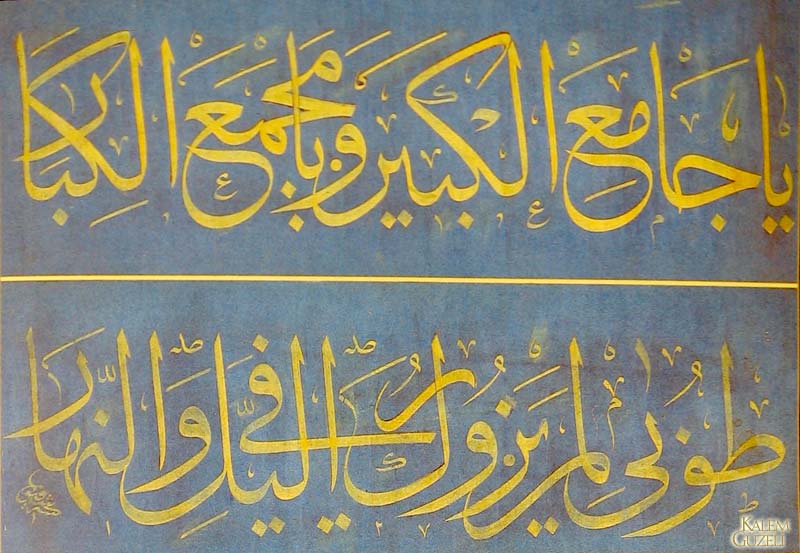 يا جامع الكبير ويا مجمع الكبار
طوبى لمن يزورك في اليل والنهار
KALEM
GÜZELİ